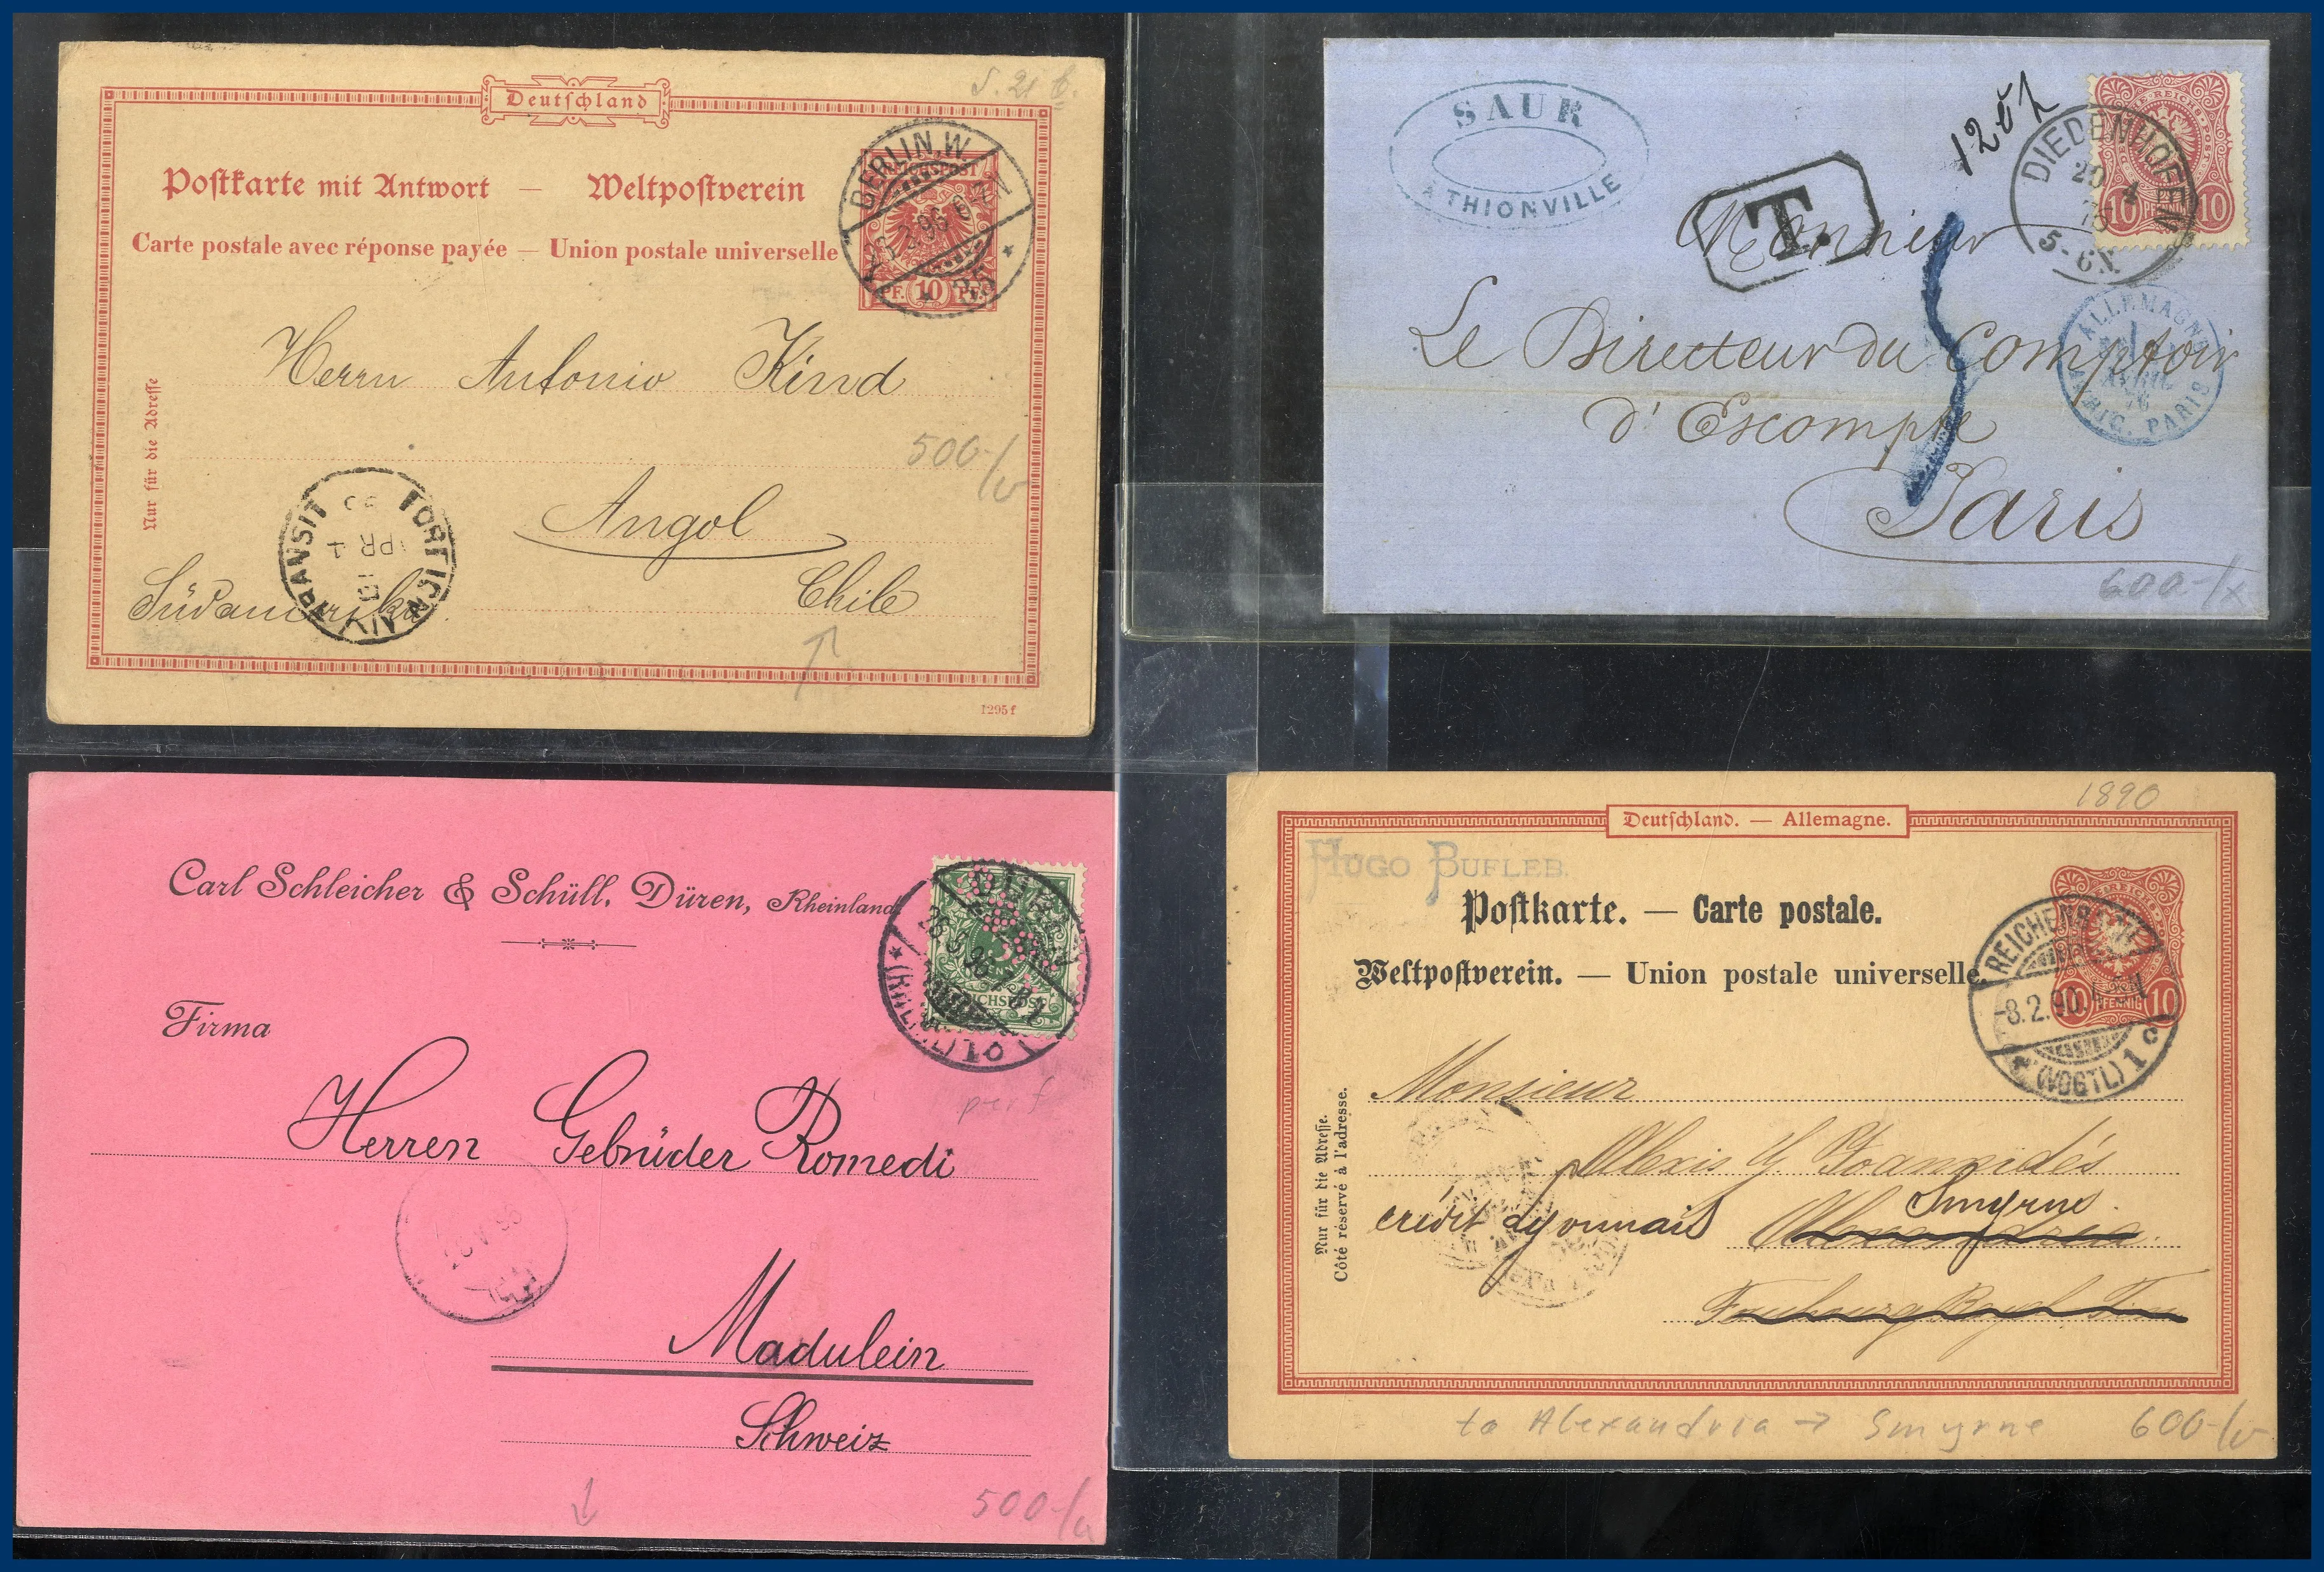 S. 21 b.
Deutschland
Postkarte mit Antwort — Weltpostverein
Carte postale avec réponse payée — Union postale universelle
BERLIN, W
REICHSPOST
35
PF. 10 PF.
Herrn Antonio Kind
500-/
Angol
Südamerika
Chile
Nur für die Adresse
TRANSIT
1295f
SAUR
A THIONVILLE
T.
DIEDENHOFEN
20 4
5-6N.
10 10
Monsieur
Le Directeur du Comptoir
d'Escompte
Paris
ALLEMAGNE
AVRIL
PARIS
600-/x
Carl Schleicher & Schüll, Düren, Rheinland
REICHSPOST
Firma
perf
Herren Gebrüder Romedi
Madulein
Schweiz
500-/
1890
Deutschland. — Allemagne.
HUGO BUFLEB.
Postkarte. — Carte postale.
Weltpostverein. — Union postale universelle.
REICHENBACH
8.2.90
(VOGTL) 1 c
10 PFENNIG 10
Monsieur
Alexis J. Joannidés
Smyrne.
crédit lyonnais Alexandria.
Nur für die Adresse.
Côté réservé à l'adresse.
to Alexandria → Smyrne 600-/